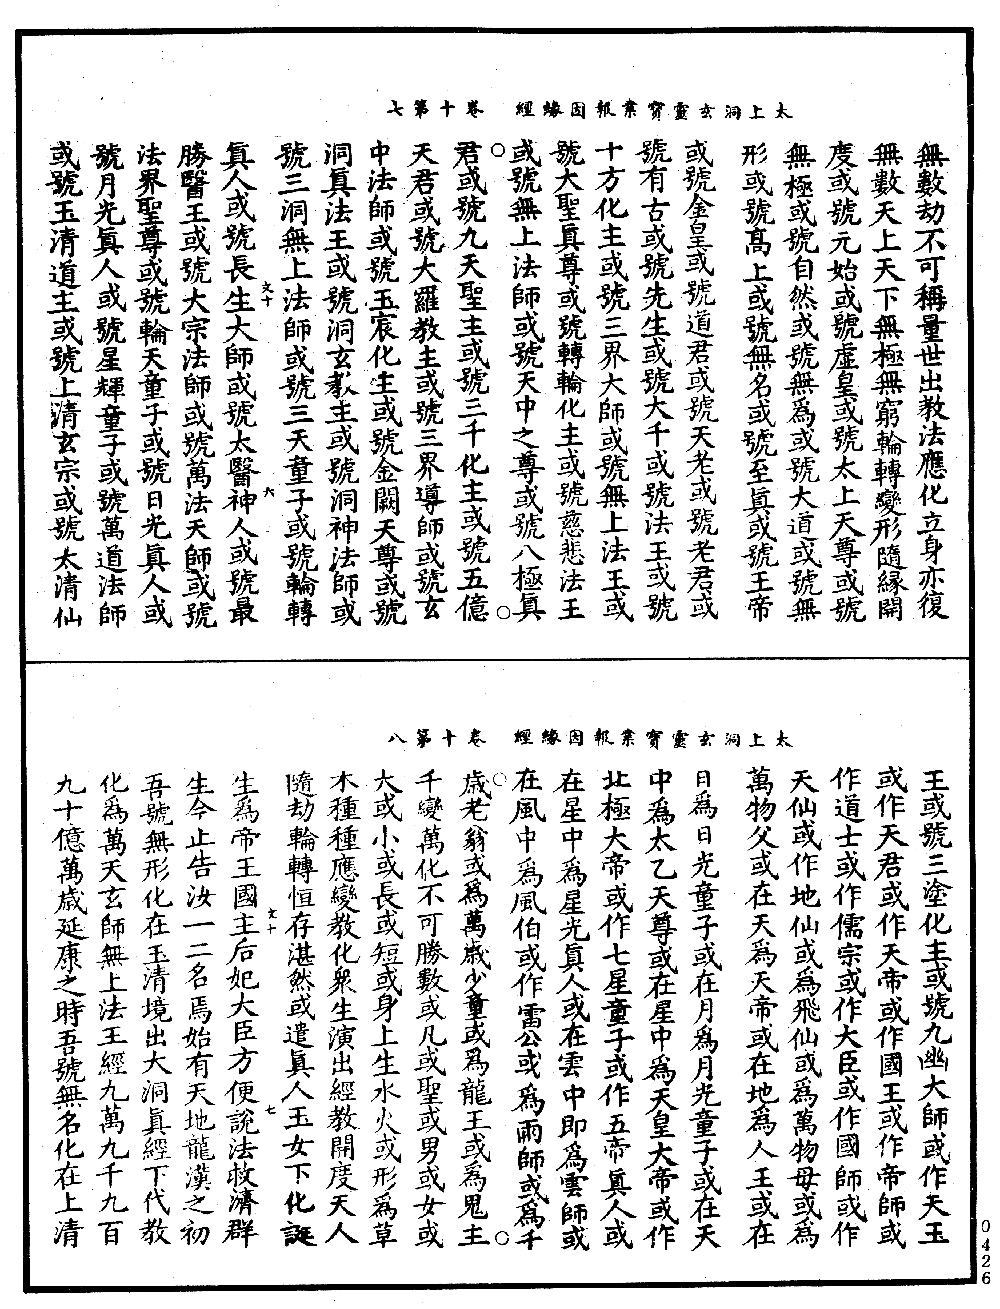 太上洞玄靈寶業報因緣經　卷十第七
無數劫不可稱量世出教法應化立身亦復
無數天上天下無極無窮輪轉變形隨緣開
度或號元始或號虛皇或號太上天尊或號
無極或號自然或號無爲或號大道或號無
形或號高上或號無名或號至眞或號王帝
或號金皇或號道君或號天老或號老君或
號有古或號先生或號大千或號法王或號
十方化主或號三界大師或號無上法王或
號大聖眞尊或號轉輪化主或號慈悲法王
或號無上法師或號天中之尊或號八極眞
君或號九天聖主或號三千化主或號五億
天君或號大羅教主或號三界導師或號玄
中法師或號玉宸化生或號金闕天尊或號
洞眞法王或號洞玄教主或號洞神法師或
號三洞無上法師或號三天童子或號輪轉
文十　六
眞人或號長生大師或號太醫神人或號最
勝醫王或號大宗法師或號萬法天師或號
法界聖尊或號輪天童子或號日光眞人或
號月光眞人或號星輝童子或號萬道法師
或號玉清道主或號上清玄宗或號太清仙
太上洞玄靈寶業報因緣經　卷十第八
王或號三塗化主或號九幽大師或作天玉
或作天君或作天帝或作國王或作帝師或
作道士或作儒宗或作大臣或作國師或作
天仙或作地仙或爲飛仙或爲萬物母或爲
萬物父或在天爲天帝或在地爲人王或在
日爲日光童子或在月爲月光童子或在天
中爲太乙天尊或在星中爲天皇大帝或作
北極大帝或作七星童子或作五帝眞人或
在星中爲星光眞人或在雲中即爲雲師或
在風中爲風伯或作雷公或爲雨師或爲千
歲老翁或爲萬歲少童或爲龍王或爲鬼主
千變萬化不可勝數或凡或聖或男或女或
大或小或長或短或身上生水火或形爲草
木種種應變教化衆生演出經教開度天人
隨劫輪轉恒存湛然或遣眞人玉女下化誕
文十　七
生爲帝王國主后妃大臣方便說法救濟群
生今止告汝一二名焉始有天地龍漢之初
吾號無形化在玉清境出大洞眞經下代教
化爲萬天玄師無上法王經九萬九千九百
九十億萬歲延康之時吾號無名化在上清
0426